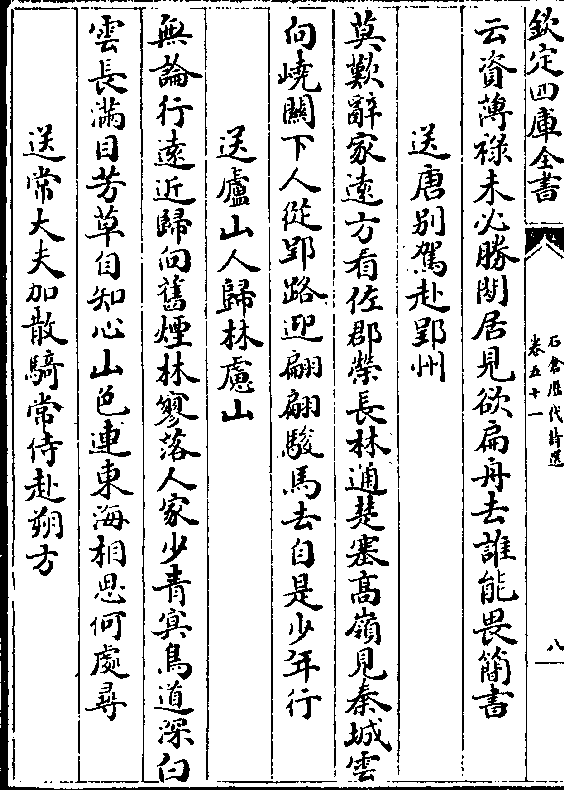 欽定四庫全書
石倉歷代詩選
卷五十一
八
云資薄祿未必勝閒居見欲扁舟去誰能畏簡書
送唐别駕赴郢州
莫歎辭家遠方看佐郡榮長林通楚塞髙嶺見秦城雲
向嶢關下人從郢路迎翩翩駿馬去自是少年行
送廬山人歸林慮山
無論行遠近歸向舊煙林寥落人家少青冥鳥道深白
雲長滿目芳草自知心山色連東海相思何處尋
送常大夫加散騎常侍赴朔方